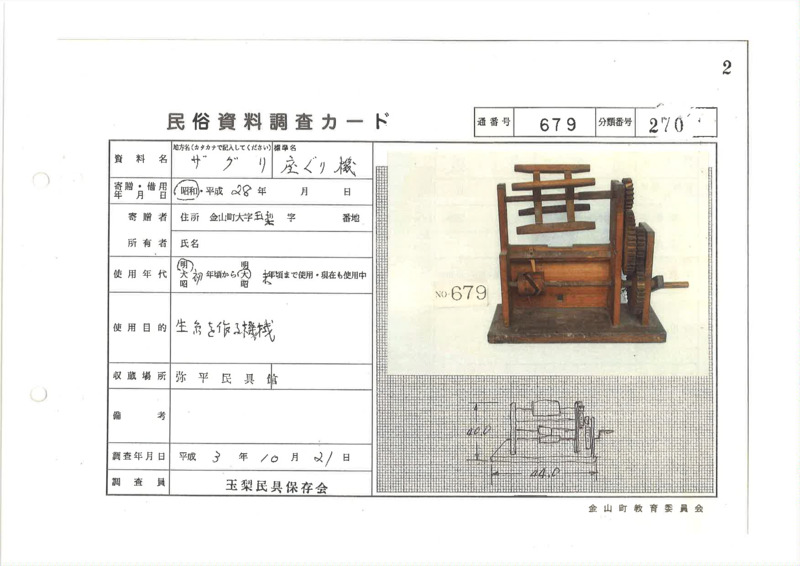 2
民俗資料調査カード
通番号 679 分類番号 270
資料名 地方名(カタカナで記入してください) ザグリ 標準名 座ぐり機
寄贈・借用年月日 昭和・平成 28年 月 日
寄贈者 住所 金山町大字玉梨 字 番地
所有者 氏名
使用年代 明大昭 初年頃から 明大昭 末年頃まで使用・現在も使用中
使用目的 生糸を作る機械
収蔵場所 弥平民具館
備考
調査年月日 平成 3年 10月 21日
調査員 玉梨民具保存会
NO.679
40.0
44.0
金山町教育委員会